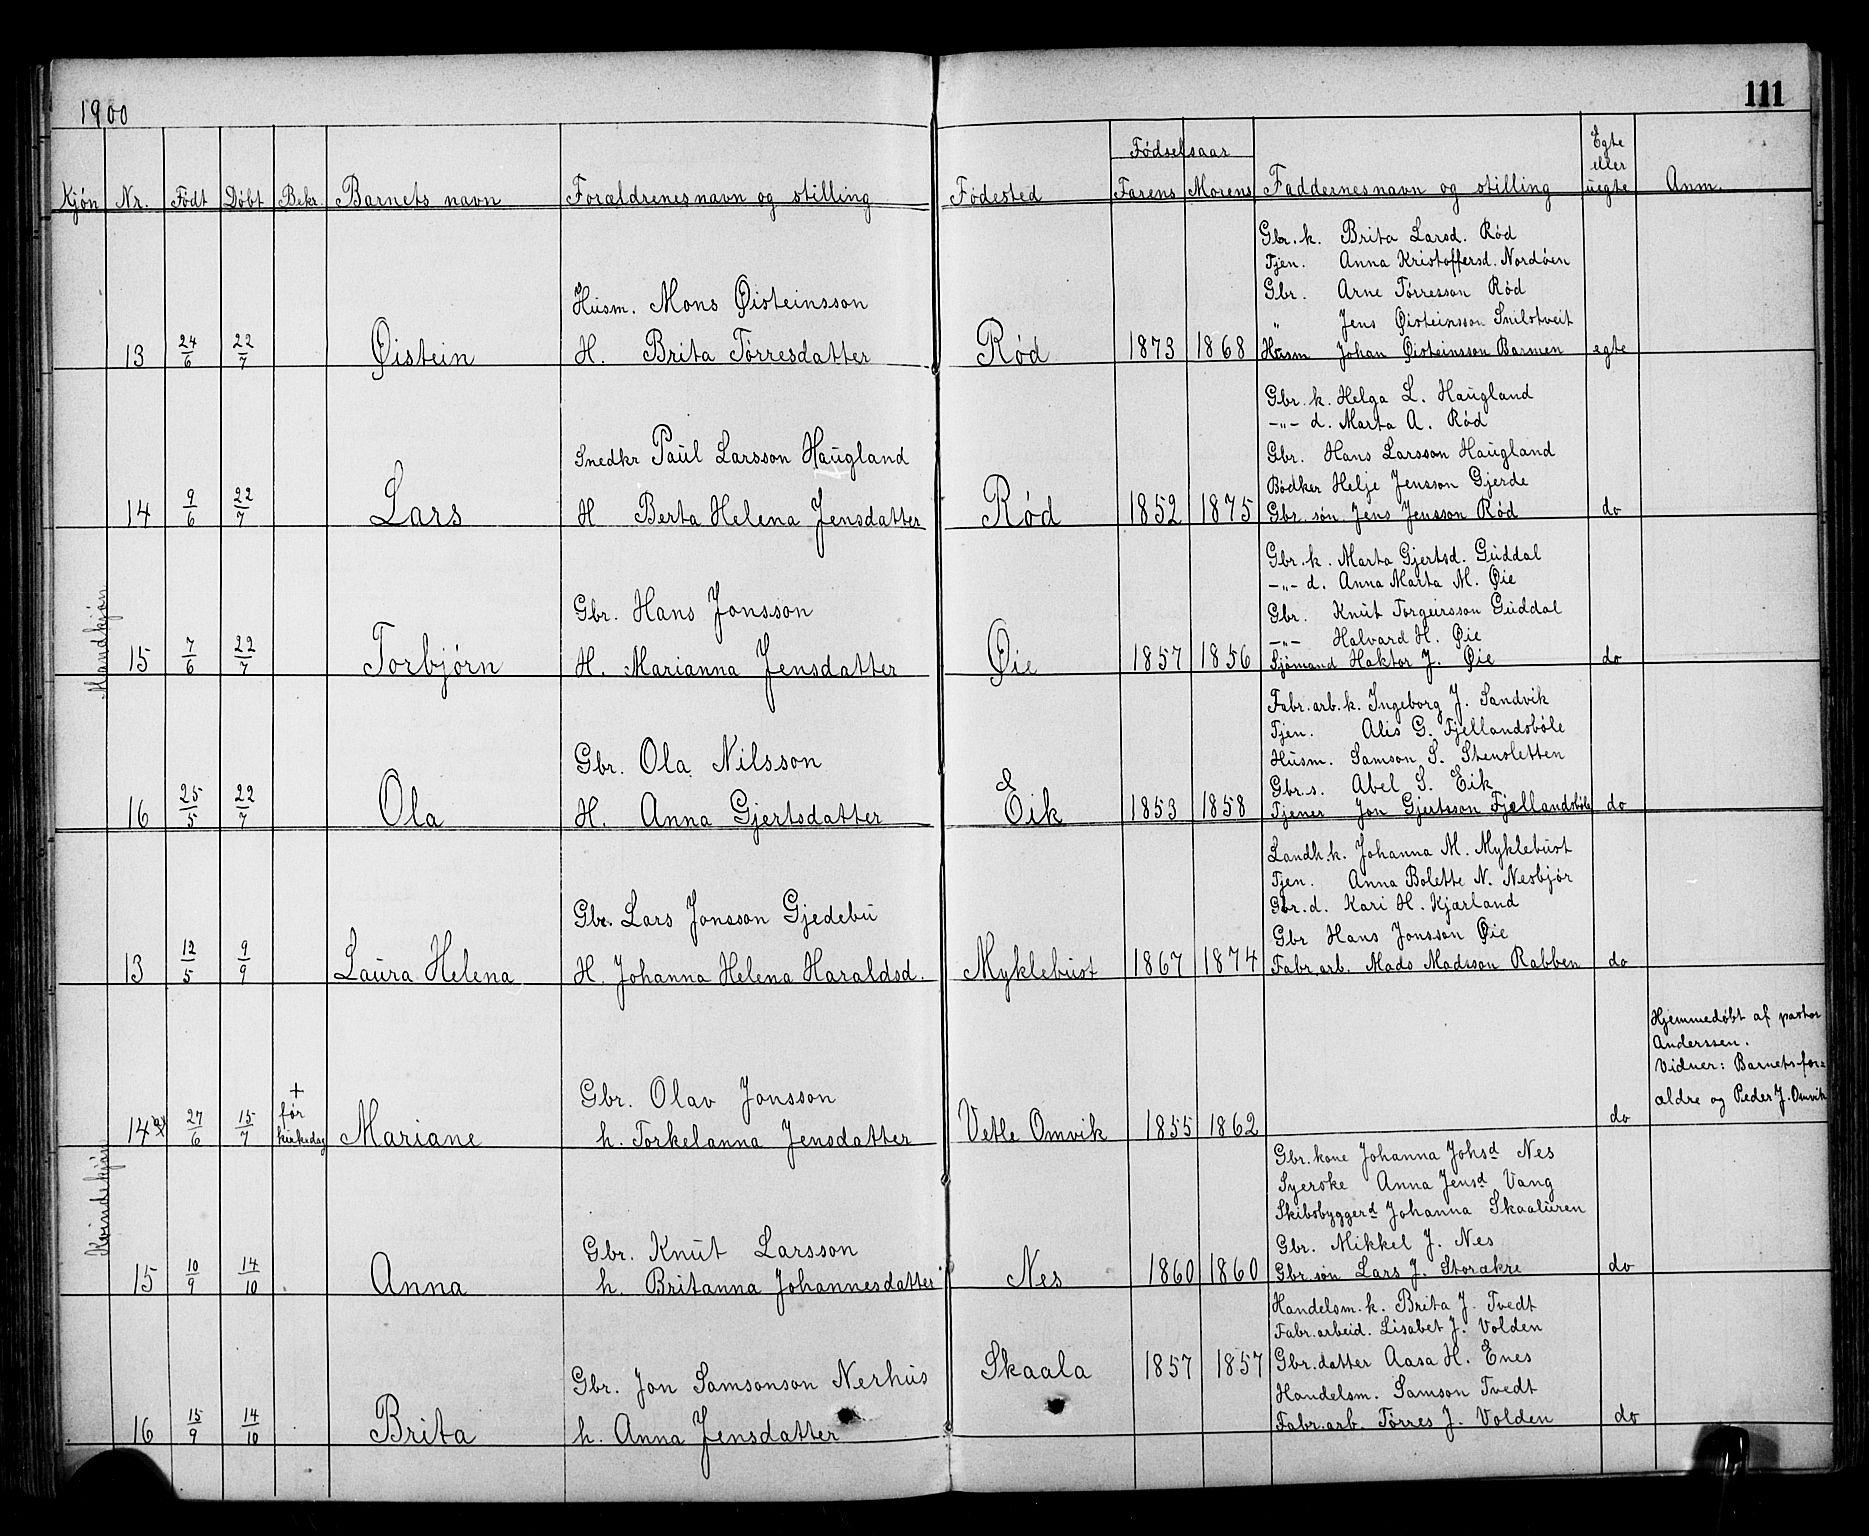 1900
111
Kjøn Nr. Født Døbt Bekr. Barnets navn Forældrenes navn og stilling Fødested Fødselsaar Farens Morens Faddernes navn og stilling Egte eller uegte Anm.
Mandkjøn
13 24/6 22/7 Øistein
Husm. Mons Øisteinsson
H. Brita Tørresdatter
Rød 1873 1868
Gbr. k. Brita Larsd. Rød
Tjen. Anna Kristoffersd. Nordøen
Gbr. Arne Tørresson Rød
" Jens Øisteinsson Snilstveit
Husm Johan Øisteinsson Barmen
egte
14 9/6 22/7 Lars
Snedkr Paul Larsson Haugland
H Berta Helena Jensdatter
Rød 1852 1875
Gbr. k. Helga L. Haugland
-"- d. Marta A. Rød
Gbr. Hans Larsson Haugland
Bødker Helje Jensson Gjerde
Gbr. søn Jens Jensson Rød
do
15 7/6 22/7 Torbjørn
Gbr. Hans Jonsson
H. Marianna Jensdatter
Øie 1857 1856
Gbr. k. Marta Gjertsd. Guddal
-"- d. Anna Marta M. Øie
Gbr. Knut Torgeirsson Guddal
-"- Halvard H. Øie
Sjømand Haktor J. Øie
do
16 25/5 22/7 Ola
Gbr. Ola Nilsson
H. Anna Gjertsdatter
Eik 1853 1858
Fabr. arb. k. Ingeborg J. Sandvik
Tjen. Alis G. Fjellandsbøle
Husm. Samson S. Stensletten
Gbr. s. Abel S. Eik
Tjener Jon Gjertsson Fjellandsbøle
do
Kvindekjøn
13 12/5 9/9 Laura Helena
Gbr. Lars Jonsson Gjedebu
H. Johanna Helena Haraldsd.
Myklebust 1867 1874
Landh. k. Johanna M. Myklebust
Tjen. Anna Bolette N. Nesbjør
Gbr. d. Kari H. Kjærland
Gbr Hans Jonsson Øie
Fabr. arb. Mads Madsson Rabben
do
14 27/6 15/7 + før kirkedag Mariane
Gbr. Olav Jonsson
h. Torkelanna Jensdatter
Vetle Omvik 1855 1862
do
Hjemmedøbt af pastor
Anderssen.
Vidner: Barnets for=
ældre og Peder J. Omvik
15 10/9 14/10 Anna
Gbr. Knut Larsson
h. Britanna Johannesdatter
Nes 1860 1860
Gbr. kone Johanna Johsd Nes
Syerske Anna Jensd Vang
Skibsbyggerd Johanna Skaaluren
Gbr. Mikkel J. Nes
Gbr. søn Lars J. Storækre
do
16 15/9 14/10 Brita
Gbr. Jon Samsonson Nerhus
h. Anna Jensdatter
Skaala 1857 1857
Handelsm. k. Brita J. Tvedt
Fabr. arbeid. Lisabet J. Volden
Gbr. datter Aasa H. Enes
Handelsm. Samson Tvedt
Fabr. arb. Tørres J. Volden
do